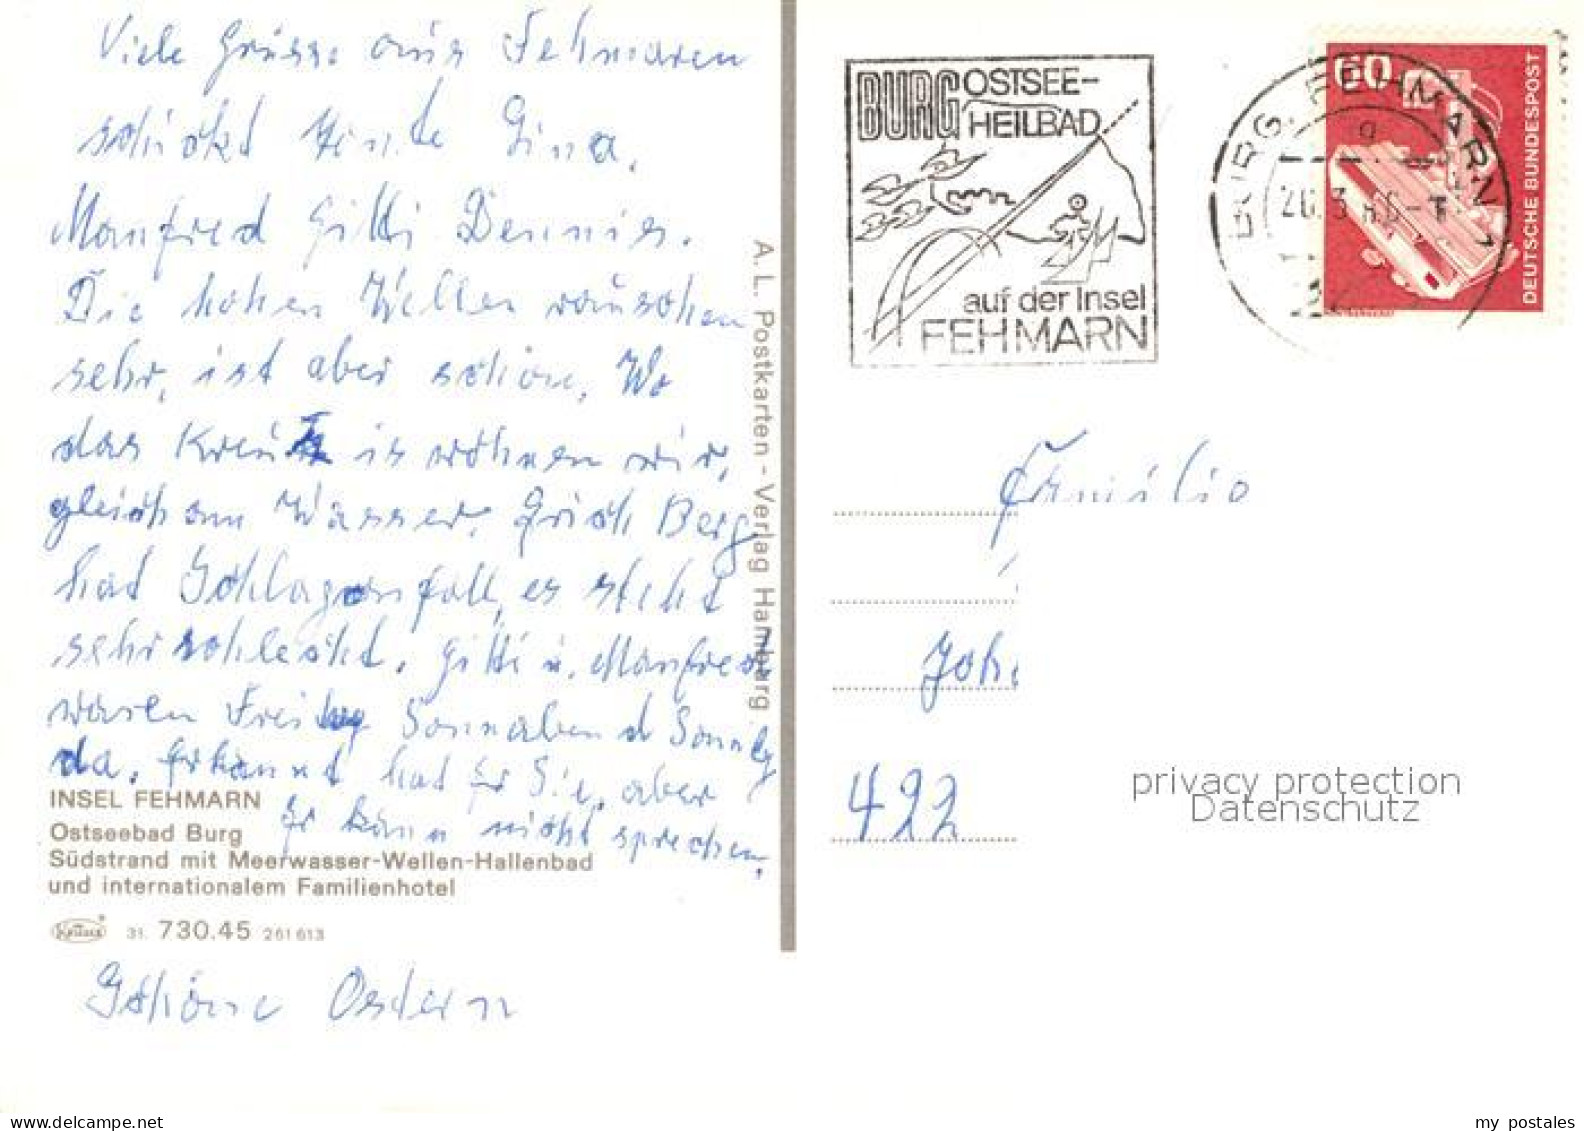 Viele Grüsse aus Fehmaren
schickt Tante Gina,
Manfred Gitti Dennis.
Die hohen Wellen rauschen
sehr, ist aber schön, Wo
das Kreuz is wohnen wir,
gleich am Wasser. Erich Berg
hat Schlaganfall, es steht
sehr schlecht. Gitti u. Manfred
waren Freitag Sonnabend Sonntag
da. Erkannt hat Er Sie, aber
Er kann nicht sprechen.
INSEL FEHMARN
Ostseebad Burg
Südstrand mit Meerwasser-Wellen-Hallenbad
und internationalem Familienhotel
Krüger
31. 730.45 261 613
Schöne Ostern
A. L. Postkarten - Verlag Hamburg
BURG OSTSEE-
HEILBAD
auf der Insel
FEHMARN
BURG, FEHMARN 1
60
DEUTSCHE BUNDESPOST
Familie
Joh
422
privacy protection
Datenschutz
my postales